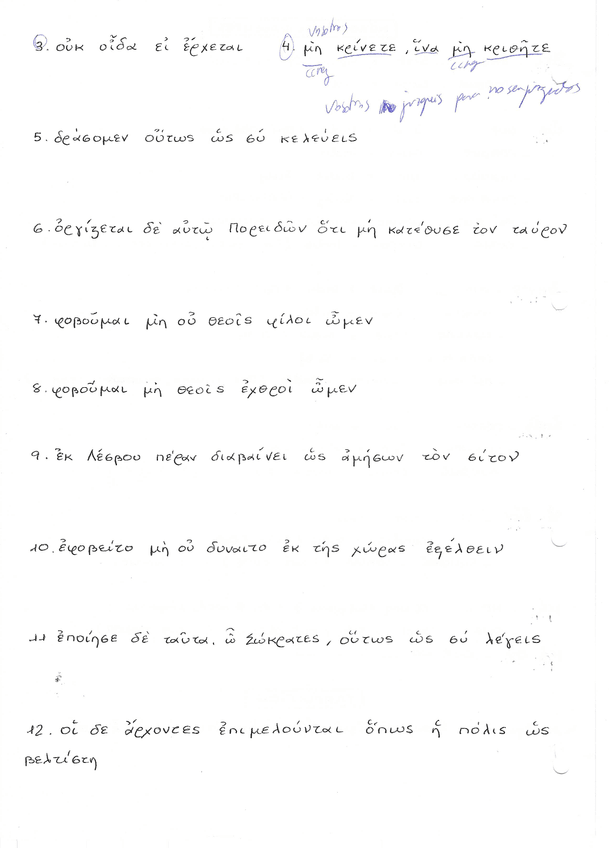 vosotros
3. οὐκ οἶδα εἰ ἔρχεται 4. μὴ κρίνετε, ἵνα μὴ κριθῆτε
ccneg ccneg
vosotros no juzgueis para no ser juzgados
5. δράσομεν οὕτως ὡς σύ κελεύεις
6. ὀργίζεται δὲ αὐτῷ Ποσειδῶν ὅτι μή κατέθυσε τὸν ταύρον
7. φοβοῦμαι μὴ οὐ θεοῖς φίλοι ὦμεν
8. φοβοῦμαι μὴ θεοῖς ἐχθροὶ ὦμεν
9. ἐκ Λέσβου πέραν διαβαίνει ὡς ἀμήσων τὸν σίτον
10. ἐφοβεῖτο μὴ οὐ δυναιτο ἐκ τῆς χώρας ἐξέλθειν
11 ἐποίησε δὲ ταῦτα, ὦ Σώκρατες, οὕτως ὡς σύ λέγεις
12. οἱ δε ἄρχοντες ἐπιμελούνται ὅπως ἡ πόλις ὡς
βελτίστη